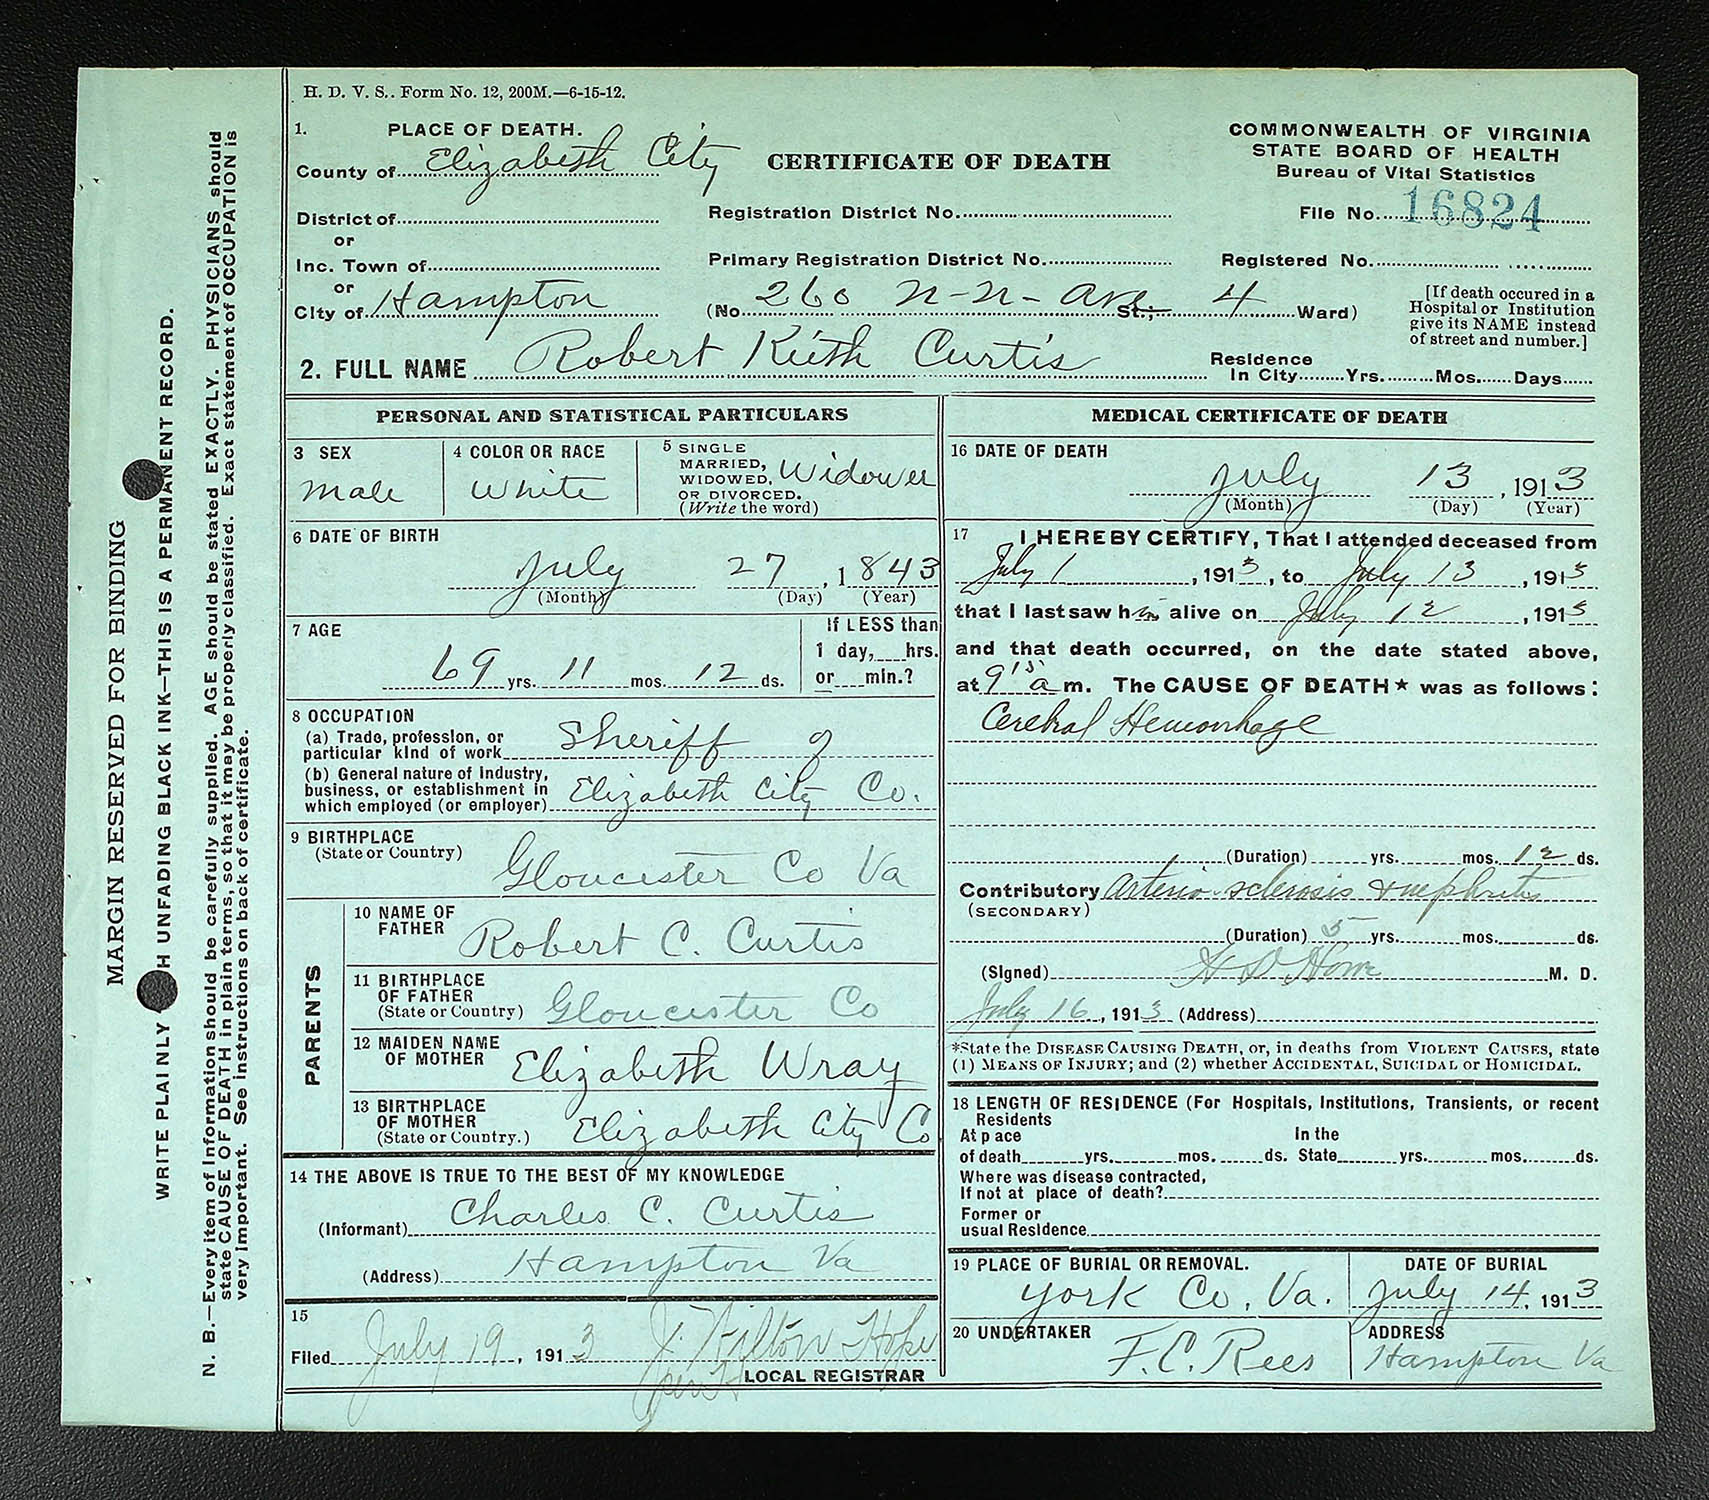 H. D. V. S.. Form No. 12, 200M.—6-15-12.
1. PLACE OF DEATH.
County of Elizabeth City
District of
or
Inc. Town of
or
City of Hampton
CERTIFICATE OF DEATH
Registration District No.
Primary Registration District No.
(No. 260 N-N- Ave St.; 4 Ward)
COMMONWEALTH OF VIRGINIA
STATE BOARD OF HEALTH
Bureau of Vital Statistics
File No. 16824
Registered No.
[If death occured in a
Hospital or Institution
give its NAME instead
of street and number.]
2. FULL NAME Robert Keith Curtis
Residence
In City Yrs. Mos. Days
PERSONAL AND STATISTICAL PARTICULARS
3 SEX
Male
4 COLOR OR RACE
White
5 SINGLE
MARRIED,
WIDOWED,
OR DIVORCED.
(Write the word)
Widower
6 DATE OF BIRTH
July 27, 1843
(Month) (Day) (Year)
7 AGE
69 yrs. 11 mos. 12 ds.
If LESS than
1 day, hrs.
or min.?
8 OCCUPATION
(a) Trade, profession, or
particular kind of work Sheriff of
(b) General nature of Industry,
business, or establishment in
which employed (or employer) Elizabeth City Co.
9 BIRTHPLACE
(State or Country)
Gloucester Co Va
PARENTS
10 NAME OF
FATHER
Robert C. Curtis
11 BIRTHPLACE
OF FATHER
(State or Country) Gloucester Co
12 MAIDEN NAME
OF MOTHER
Elizabeth Wray
13 BIRTHPLACE
OF MOTHER
(State or Country.) Elizabeth City Co
14 THE ABOVE IS TRUE TO THE BEST OF MY KNOWLEDGE
(Informant) Charles C. Curtis
(Address) Hampton Va
15
Filed July 19, 1913 J. Wilton Hope
LOCAL REGISTRAR
MEDICAL CERTIFICATE OF DEATH
16 DATE OF DEATH
July 13, 1913
(Month) (Day) (Year)
17 I HEREBY CERTIFY, That I attended deceased from
July 1, 1913, to July 13, 1913
that I last saw him alive on July 12, 1913
and that death occurred, on the date stated above,
at 9 15 a m. The CAUSE OF DEATH* was as follows:
Cerebral Hemorrhage
(Duration) yrs. mos. 12 ds.
Contributory Arterio-sclerosis & nephritis
(SECONDARY)
(Duration) 5 yrs. mos. ds.
(Signed) M. D.
July 16, 1913 (Address)
*State the DISEASE CAUSING DEATH, or, in deaths from VIOLENT CAUSES, state
(1) MEANS OF INJURY; and (2) whether ACCIDENTAL, SUICIDAL or HOMICIDAL.
18 LENGTH OF RESIDENCE (For Hospitals, Institutions, Transients, or recent
Residents
At place In the
of death yrs. mos. ds. State yrs. mos. ds.
Where was disease contracted,
If not at place of death?
Former or
usual Residence
19 PLACE OF BURIAL OR REMOVAL.
York Co, Va.
DATE OF BURIAL
July 14, 1913
20 UNDERTAKER
F. C. Rees
ADDRESS
Hampton Va
MARGIN RESERVED FOR BINDING
WRITE PLAINLY H UNFADING BLACK INK—THIS IS A PERMANENT RECORD.
N. B.—Every item of Information should be carefully supplied. AGE should be stated EXACTLY. PHYSICIANS should
state CAUSE OF DEATH in plain terms, so that it may be properly classified. Exact statement of OCCUPATION is
very important. See instructions on back of certificate.